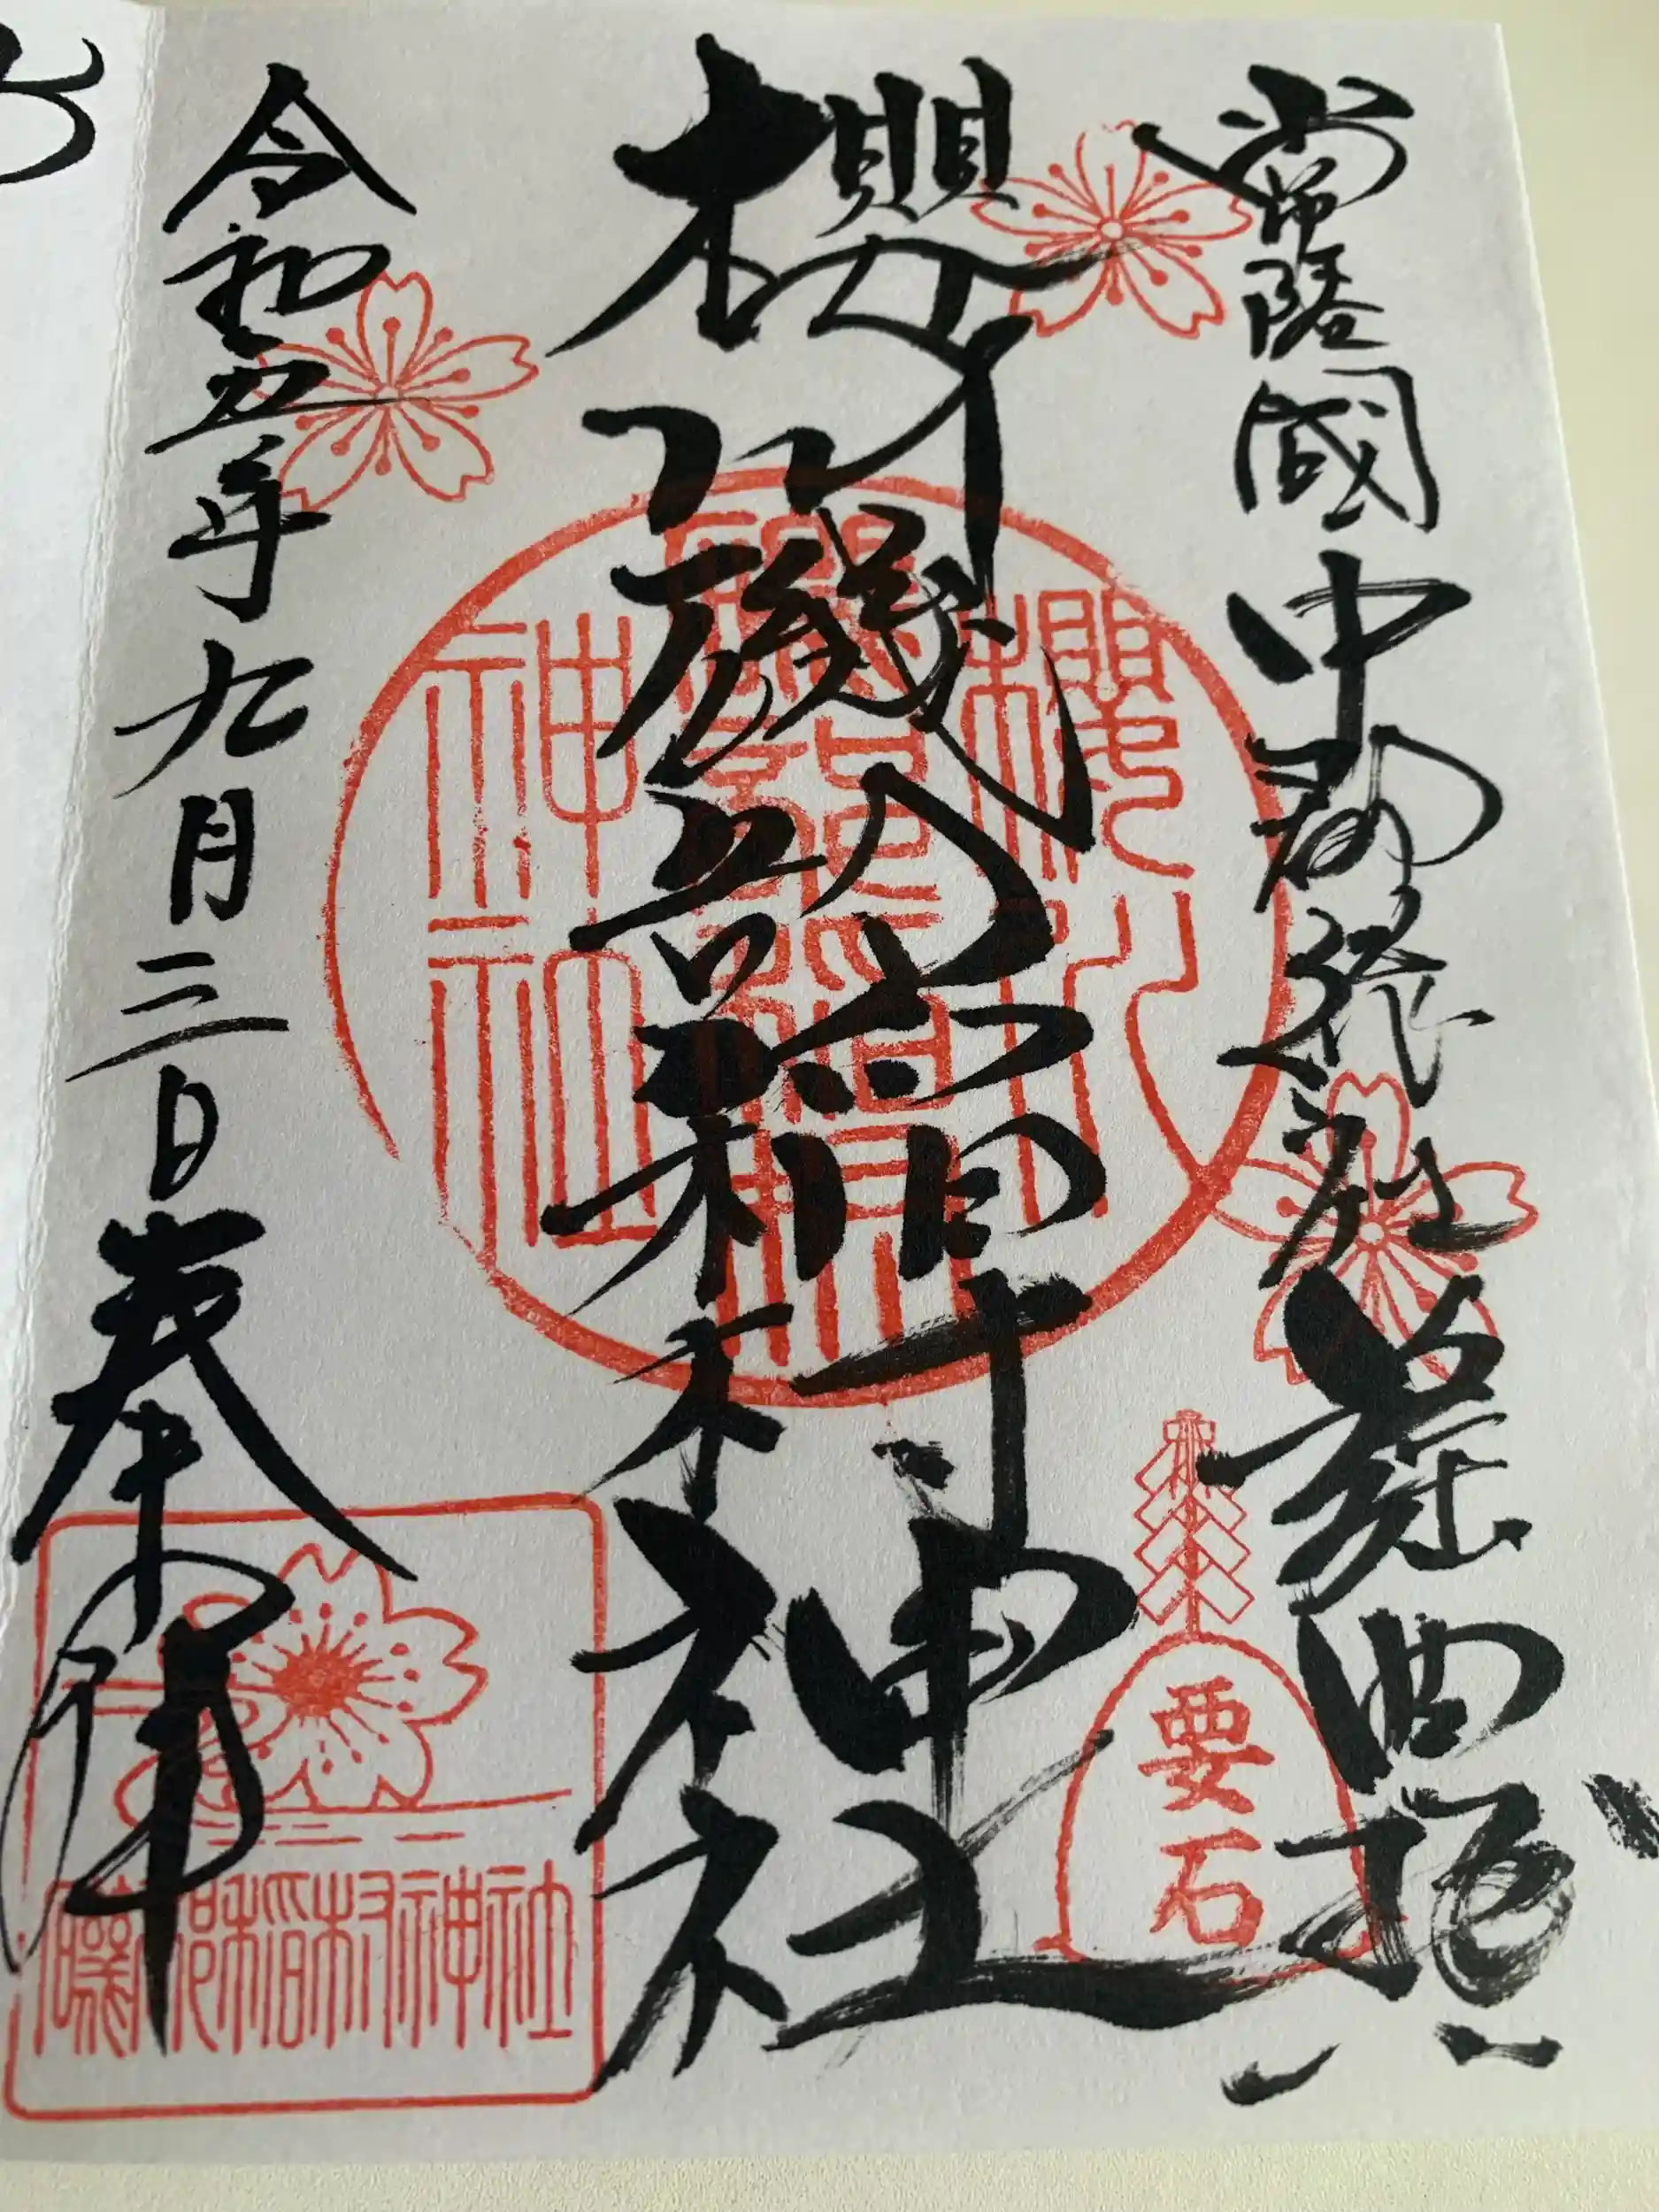 常陸國中郡総社
櫻川磯部稲村神社
令和五年九月三日
奉拝
櫻川
磯部稲村
神社
要石
磯部稲村神社